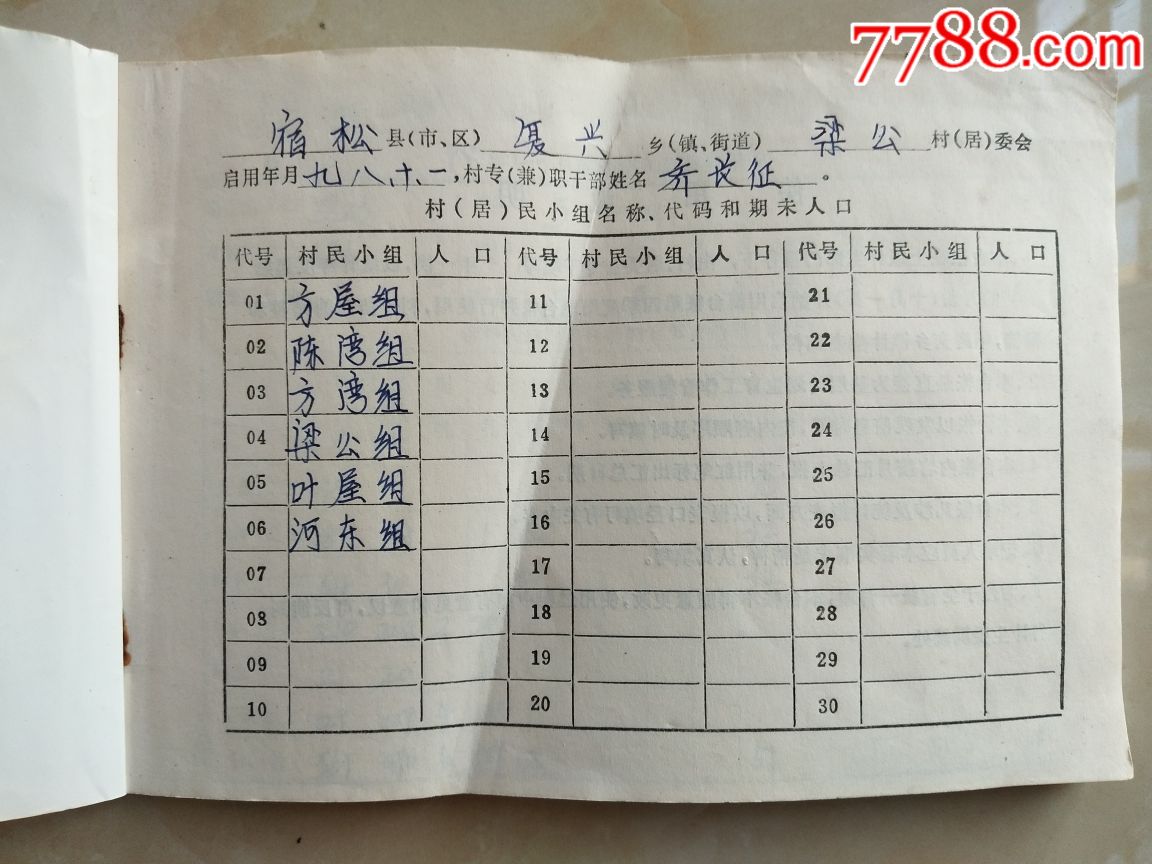 7788.com
宿松县(市、区)复兴乡(镇、街道)梁公村(居)委会
启用年月九八.十.一,村专(兼)职干部姓名齐长征。
村(居)民小组名称、代码和期未人口
代号 村民小组 人口 代号 村民小组 人口 代号 村民小组 人口
01 方屋组 11 21
02 陈湾组 12 22
03 方湾组 13 23
04 梁公组 14 24
05 叶屋组 15 25
06 河东组 16 26
07 17 27
08 18 28
09 19 29
10 20 30